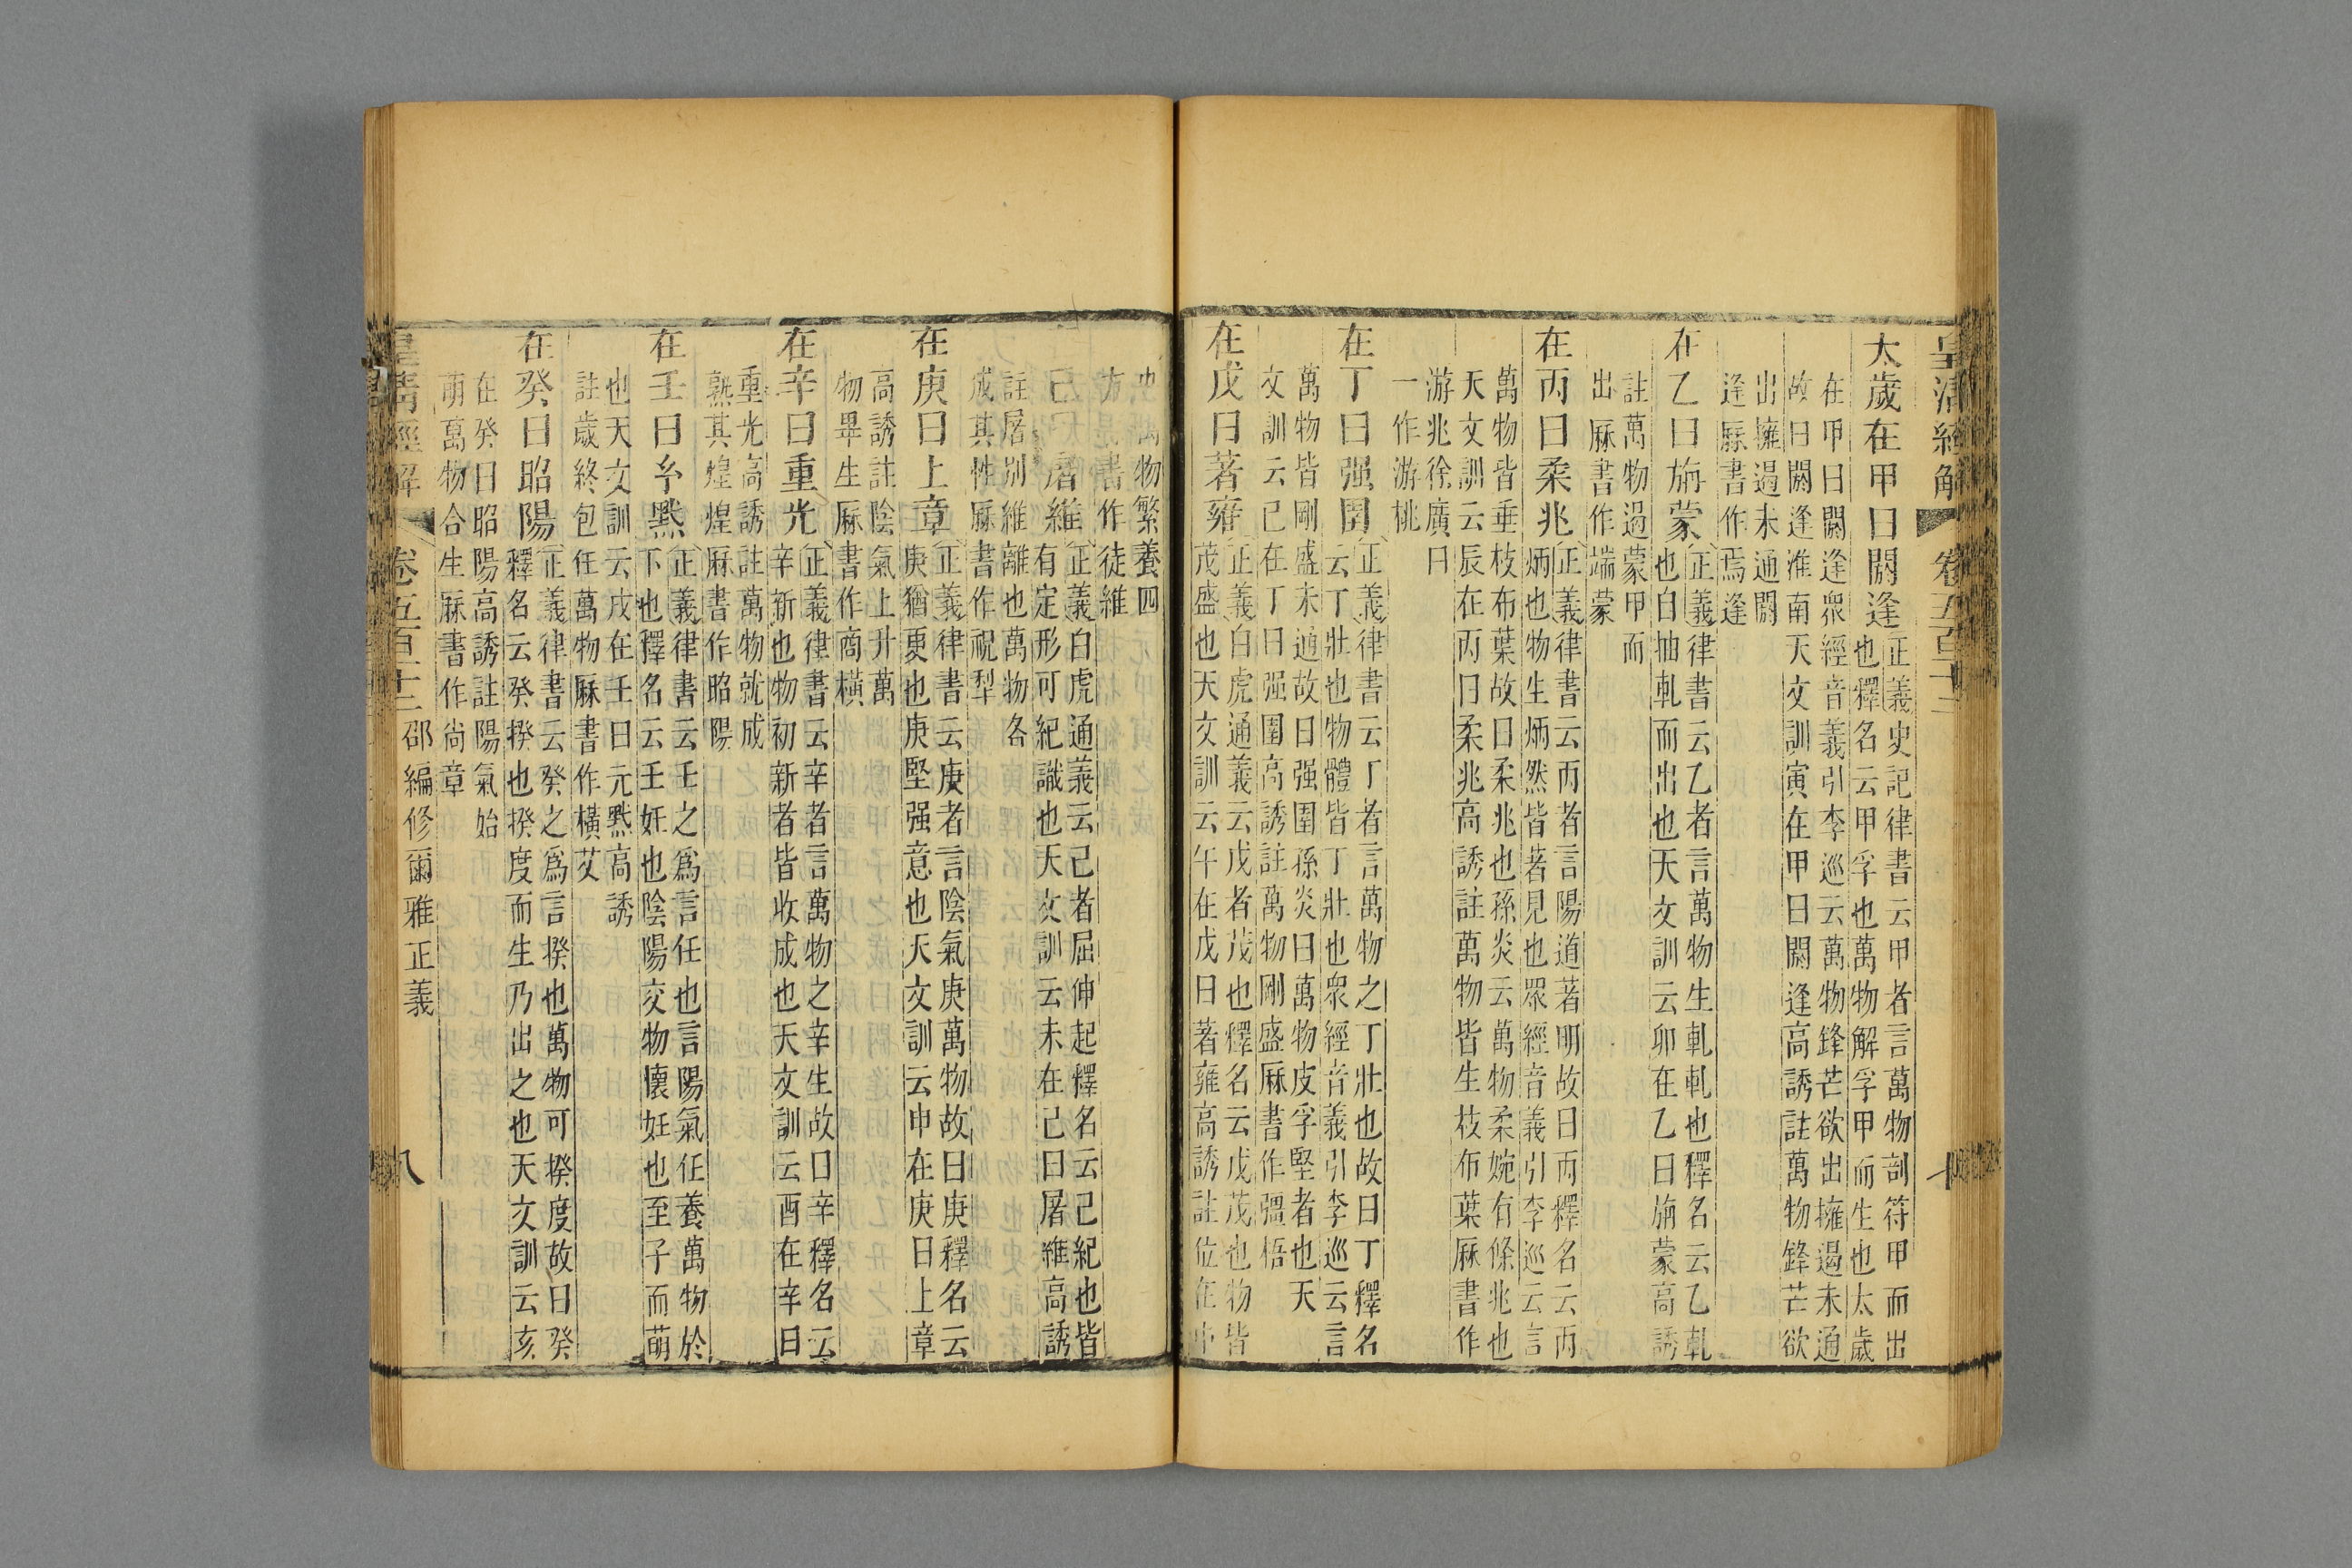 皇清經解 卷五百十三
太歲在甲曰閼逢
正義史記律書云甲者言萬物剖符甲而出
也釋名云甲孚也萬物解孚甲而生也太歲
在甲曰閼逢衆經音義引李巡云萬物鋒芒欲出擁遏未通
故曰閼逢淮南天文訓寅在甲曰閼逢高誘註萬物鋒芒欲
出擁遏未通閼
逢厤書作焉逢
在乙曰旃蒙
正義律書云乙者言萬物生軋軋也釋名云乙軋
也自抽軋而出也天文訓云卯在乙曰旃蒙高誘
註萬物遏蒙甲而
出厤書作端蒙
在丙曰柔兆
正義律書云丙者言陽道著明故曰丙釋名云丙
炳也物生炳然皆著見也眾經音義引李巡云言
萬物皆垂枝布葉故曰柔兆也孫炎云萬物柔婉有條兆也
天文訓云辰在丙曰柔兆高誘註萬物皆生枝布葉厤書作
游兆徐廣曰
一作游桃
在丁曰强圉
正義律書云丁者言萬物之丁壯也故曰丁釋名
云丁壯也物體皆丁壯也眾經音義引李巡云言
萬物皆剛盛未通故曰强圉孫炎曰萬物皮孚堅者也天
文訓云巳在丁曰强圉高誘註萬物剛盛厤書作彊梧
在戊曰著雍
正義白虎通義云戊者茂也釋名云戊茂也物皆
茂盛也天文訓云午在戊曰著雍高誘註位在中
央萬物繁養四
方厤書作徒維
在己曰屠維
正義白虎通義云己者屈伸起釋名云己紀也皆
有定形可紀識也天文訓云未在己曰屠維高誘
註屠別維離也萬物各
成其性厤書作祝犁
在庚曰上章
正義律書云庚者言陰氣庚萬物故曰庚釋名云
庚猶更也庚堅强意也天文訓云申在庚曰上章
高誘註陰氣上升萬
物畢生厤書作商橫
在辛曰重光
正義律書云辛者言萬物之辛生故曰辛釋名云
辛新也物初新者皆收成也天文訓云酉在辛曰
重光高誘註萬物就成
熟其煌煌厤書作昭陽
在壬曰玄黓
正義律書云壬之爲言任也言陽氣任養萬物於
下也釋名云壬妊也陰陽交物懷妊也至子而萌
也天文訓云戌在壬曰元黓高誘
註歲終包任萬物厤書作橫艾
在癸曰昭陽
正義律書云癸之爲言揆也萬物可揆度故曰癸
釋名云癸揆也揆度而生乃出之也天文訓云亥
在癸曰昭陽高誘註陽氣始
萌萬物合生厤書作尚章
皇清經解 卷五百十三 邵編修爾雅正義 八